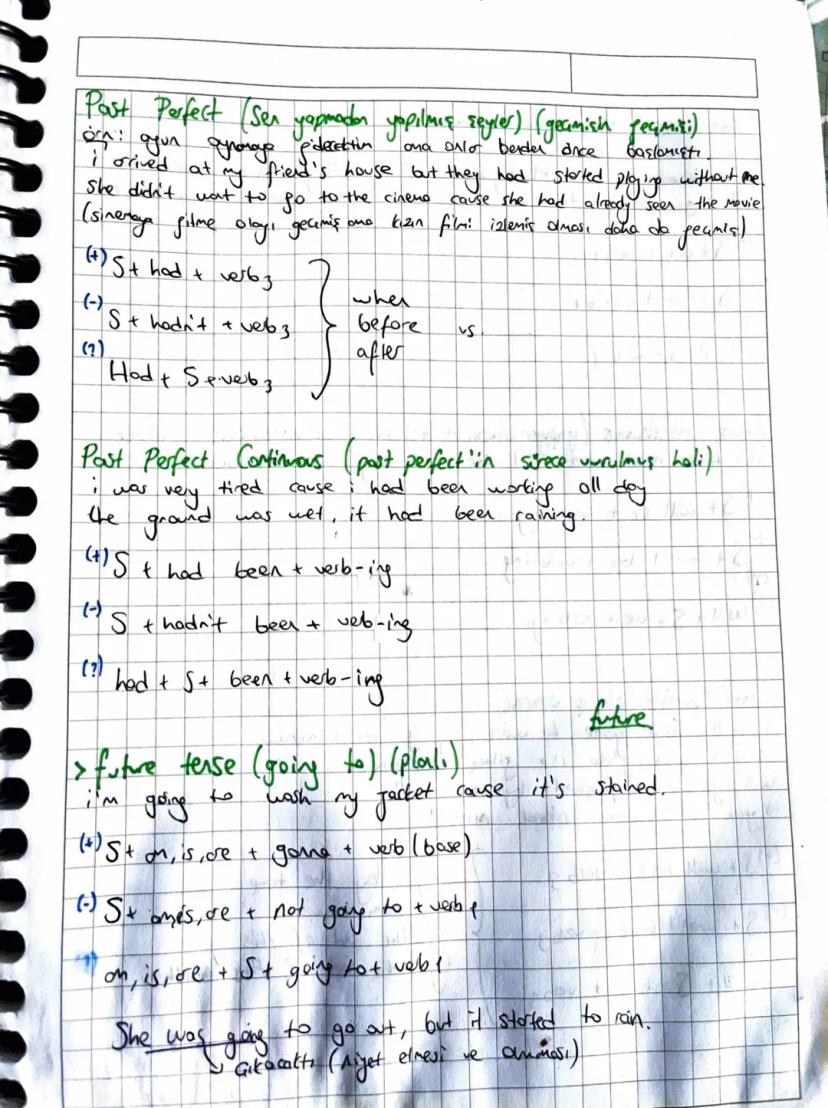 Past Perfect (Sen yapmadan yapılmış şeyler) (geçmişin geçmişi)
örn: oyun oynamaya gidecektin ama onlar benden önce başlamıştı.
i arived at my friend's house but they had started playing without me.
she didn't want to go to the cinema cause she had already seen the movie
(sinemaya gitme olayı geçmiş ama kızın filmi izlemiş olması daha da geçmiş)
(+) S + had + verb3
(-) S + hadn't + verb3
(?) Had + S + verb3
when
before vs.
after
Past Perfect Continuous (past perfect'in sürece vurulmuş hali)
i was very tired cause i had been working all day
the ground was wet, it had been raining.
(+) S + had been + verb-ing
(-) S + hadn't been + verb-ing
(?) had + S + been + verb-ing
future
> future tense (going to) (planlı)
i'm going to wash my jacket cause it's stained.
(+) S + am, is, are + gonna + verb (base)
(-) S + am, is, are + not going to + verb1
? am, is, are + S + going to + verb1
She was going to go out, but it started to rain.
çıkacaktı (niyet etmesi ve olmaması)